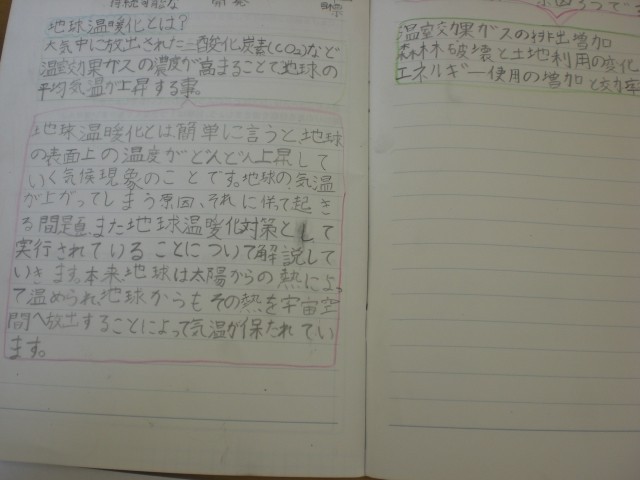 持続可能な 開発 目標
地球温暖化とは?
大気中に放出された二酸化炭素(CO₂)など
温室効果ガスの濃度が高まることで地球の
平均気温が上昇する事。
地球温暖化とは簡単に言うと、地球
の表面上の温度がどんどん上昇して
いく気候現象のことです。地球の気温
が上がってしまう原因、それに伴って起き
る問題、また地球温暖化対策として
実行されていることについて解説して
いきます。本来、地球は太陽からの熱によっ
て温められ、地球からもその熱を宇宙空
間へ放出することによって気温が保たれてい
ます。
原因3つで
温室効果ガスの排出増加
森林破壊と土地利用の変化
エネルギー使用の増加と効率